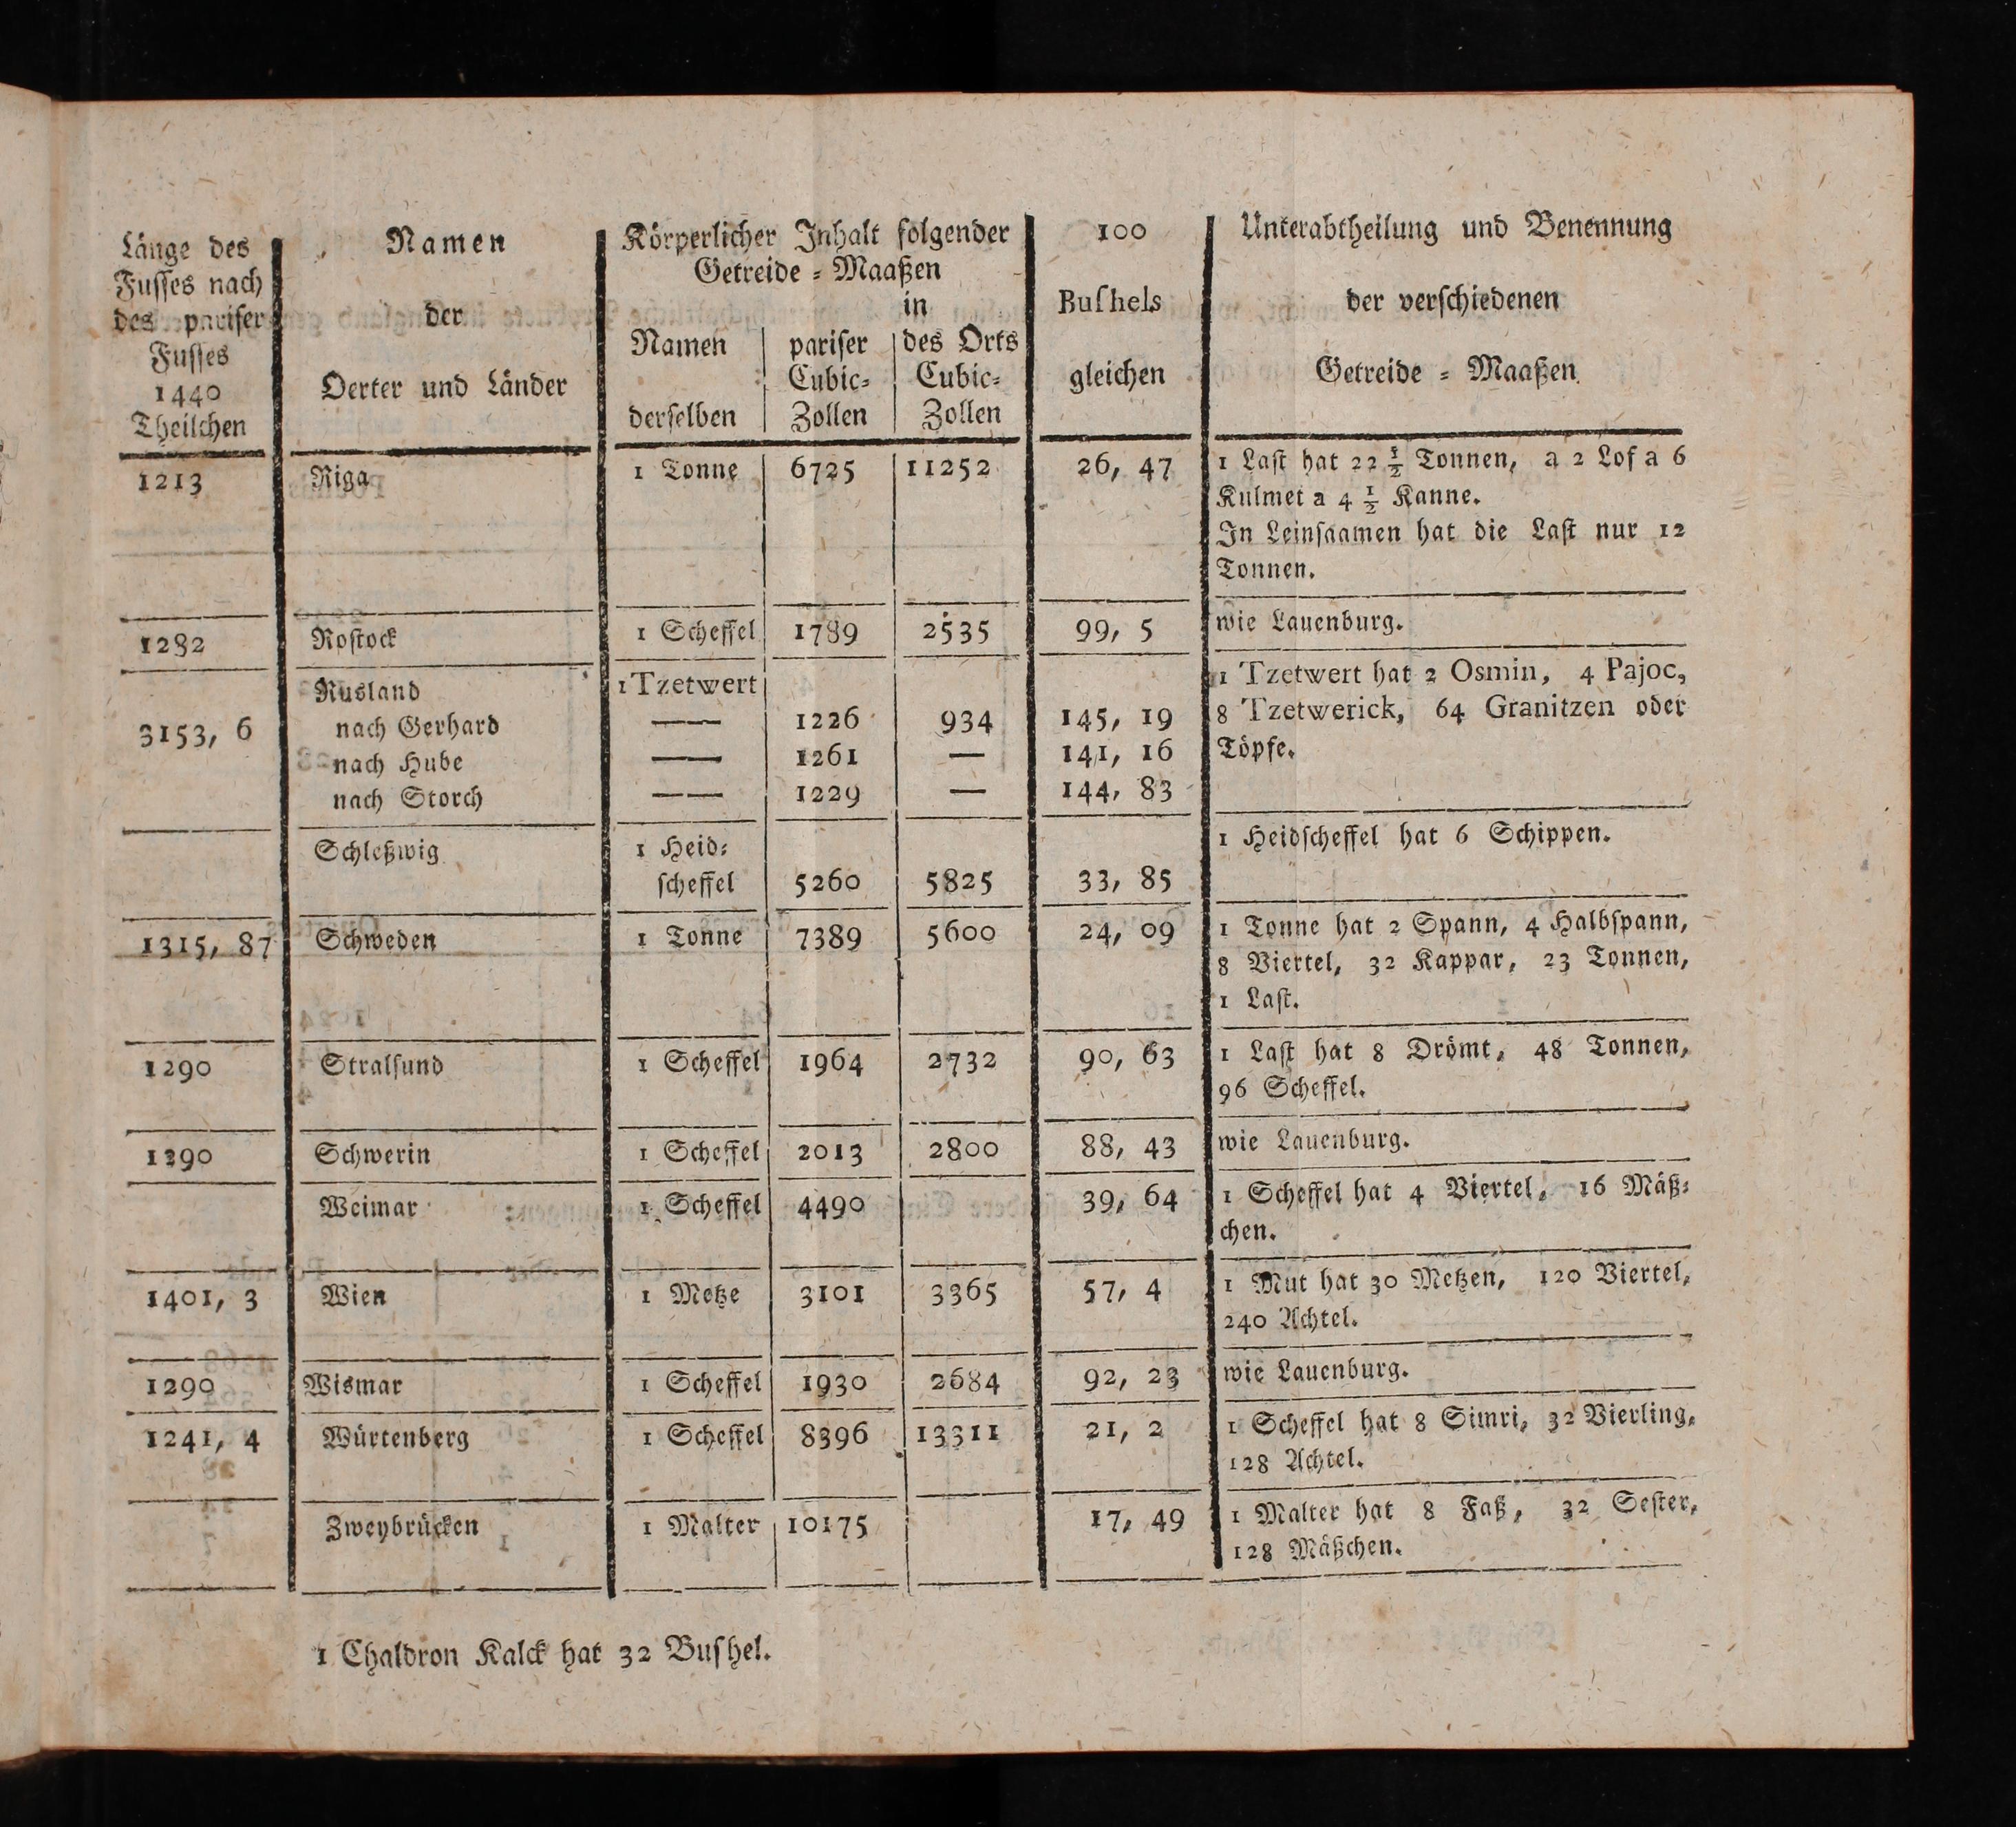 Länge des Fusses nach des pariser Fusses 1440 Theilchen | Namen der Oerter und Länder | Körperlicher Inhalt folgender Getreide = Maaßen in | 100 Buſhels gleichen | Unterabtheilung und Benennung der verſchiedenen Getreide = Maaßen
Namen derſelben | pariſer Cubic= Zollen | des Orts Cubic= Zollen
1213 | Riga | 1 Tonne | 6725 | 11252 | 26, 47 | 1 Laſt hat 22 ½ Tonnen, a 2 Lof a 6
Kulmet a 4 ½ Kanne.
In Leinſaamen hat die Laſt nur 12
Tonnen.
1282 | Roſtock | 1 Scheffel | 1789 | 2535 | 99, 5 | wie Lauenburg.
Rusland | 1 Tzetwert | 1 Tzetwert hat 2 Osmin, 4 Pajoc,
3153, 6 | nach Gerhard | —— | 1226 | 934 | 145, 19 | 8 Tzetwerick, 64 Granitzen oder
nach Hube | —— | 1261 | — | 141, 16 | Töpfe.
nach Storch | —— | 1229 | — | 144, 83
Schleßwig | 1 Heid= | 1 Heidſcheffel hat 6 Schippen.
ſcheffel | 5260 | 5825 | 33, 85
1315, 87 | Schweden | 1 Tonne | 7389 | 5600 | 24, 09 | 1 Tonne hat 2 Spann, 4 Halbſpann,
8 Viertel, 32 Kappar, 23 Tonnen,
1 Laſt.
1290 | Stralſund | 1 Scheffel | 1964 | 2732 | 90, 63 | 1 Laſt hat 8 Drömt, 48 Tonnen,
96 Scheffel.
1290 | Schwerin | 1 Scheffel | 2013 | 2800 | 88, 43 | wie Lauenburg.
Weimar | 1 Scheffel | 4490 | 39, 64 | 1 Scheffel hat 4 Viertel, 16 Mäß=
chen.
1401, 3 | Wien | 1 Metze | 3101 | 3365 | 57, 4 | 1 Mut hat 30 Metzen, 120 Viertel,
240 Achtel.
1290 | Wismar | 1 Scheffel | 1930 | 2684 | 92, 23 | wie Lauenburg.
1241, 4 | Würtenberg | 1 Scheffel | 8396 | 13311 | 21, 2 | 1 Scheffel hat 8 Simri, 32 Vierling,
128 Achtel.
Zweybrücken | 1 Malter | 10175 | 17, 49 | 1 Malter hat 8 Faß, 32 Seſter,
128 Mäßchen.
1 Chaldron Kalck hat 32 Buſhel.